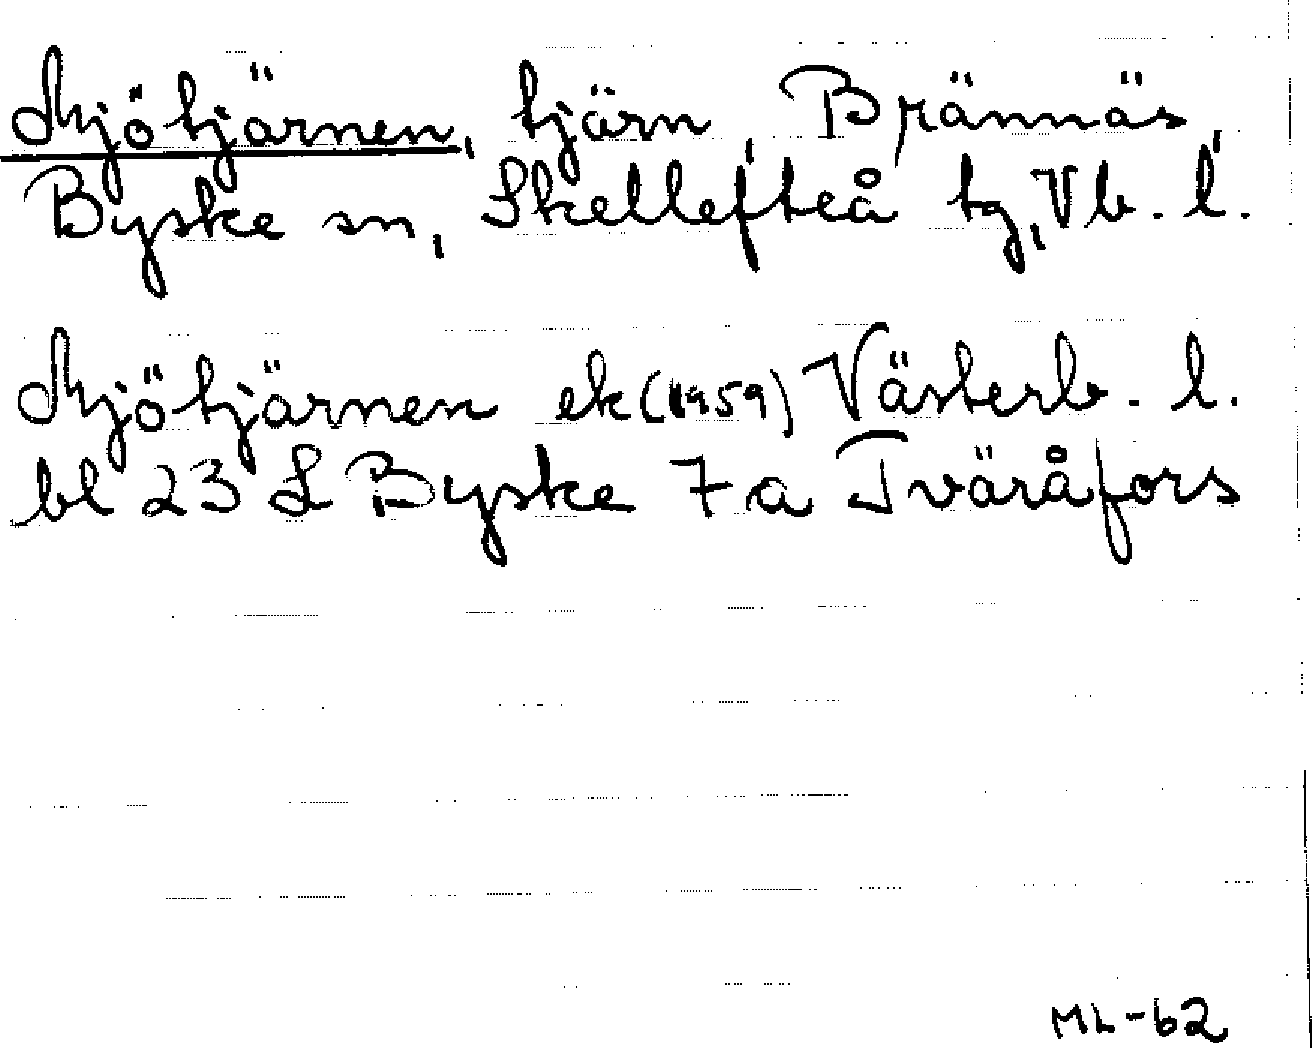 Mjötjärnen, tjärn, Brännäs,
Byske sn, Skellefteå tg, Vb. l.
Mjötjärnen ek (1959) Västerb. l.
bl 23 L Byske 7a Tväråfors
ML-62